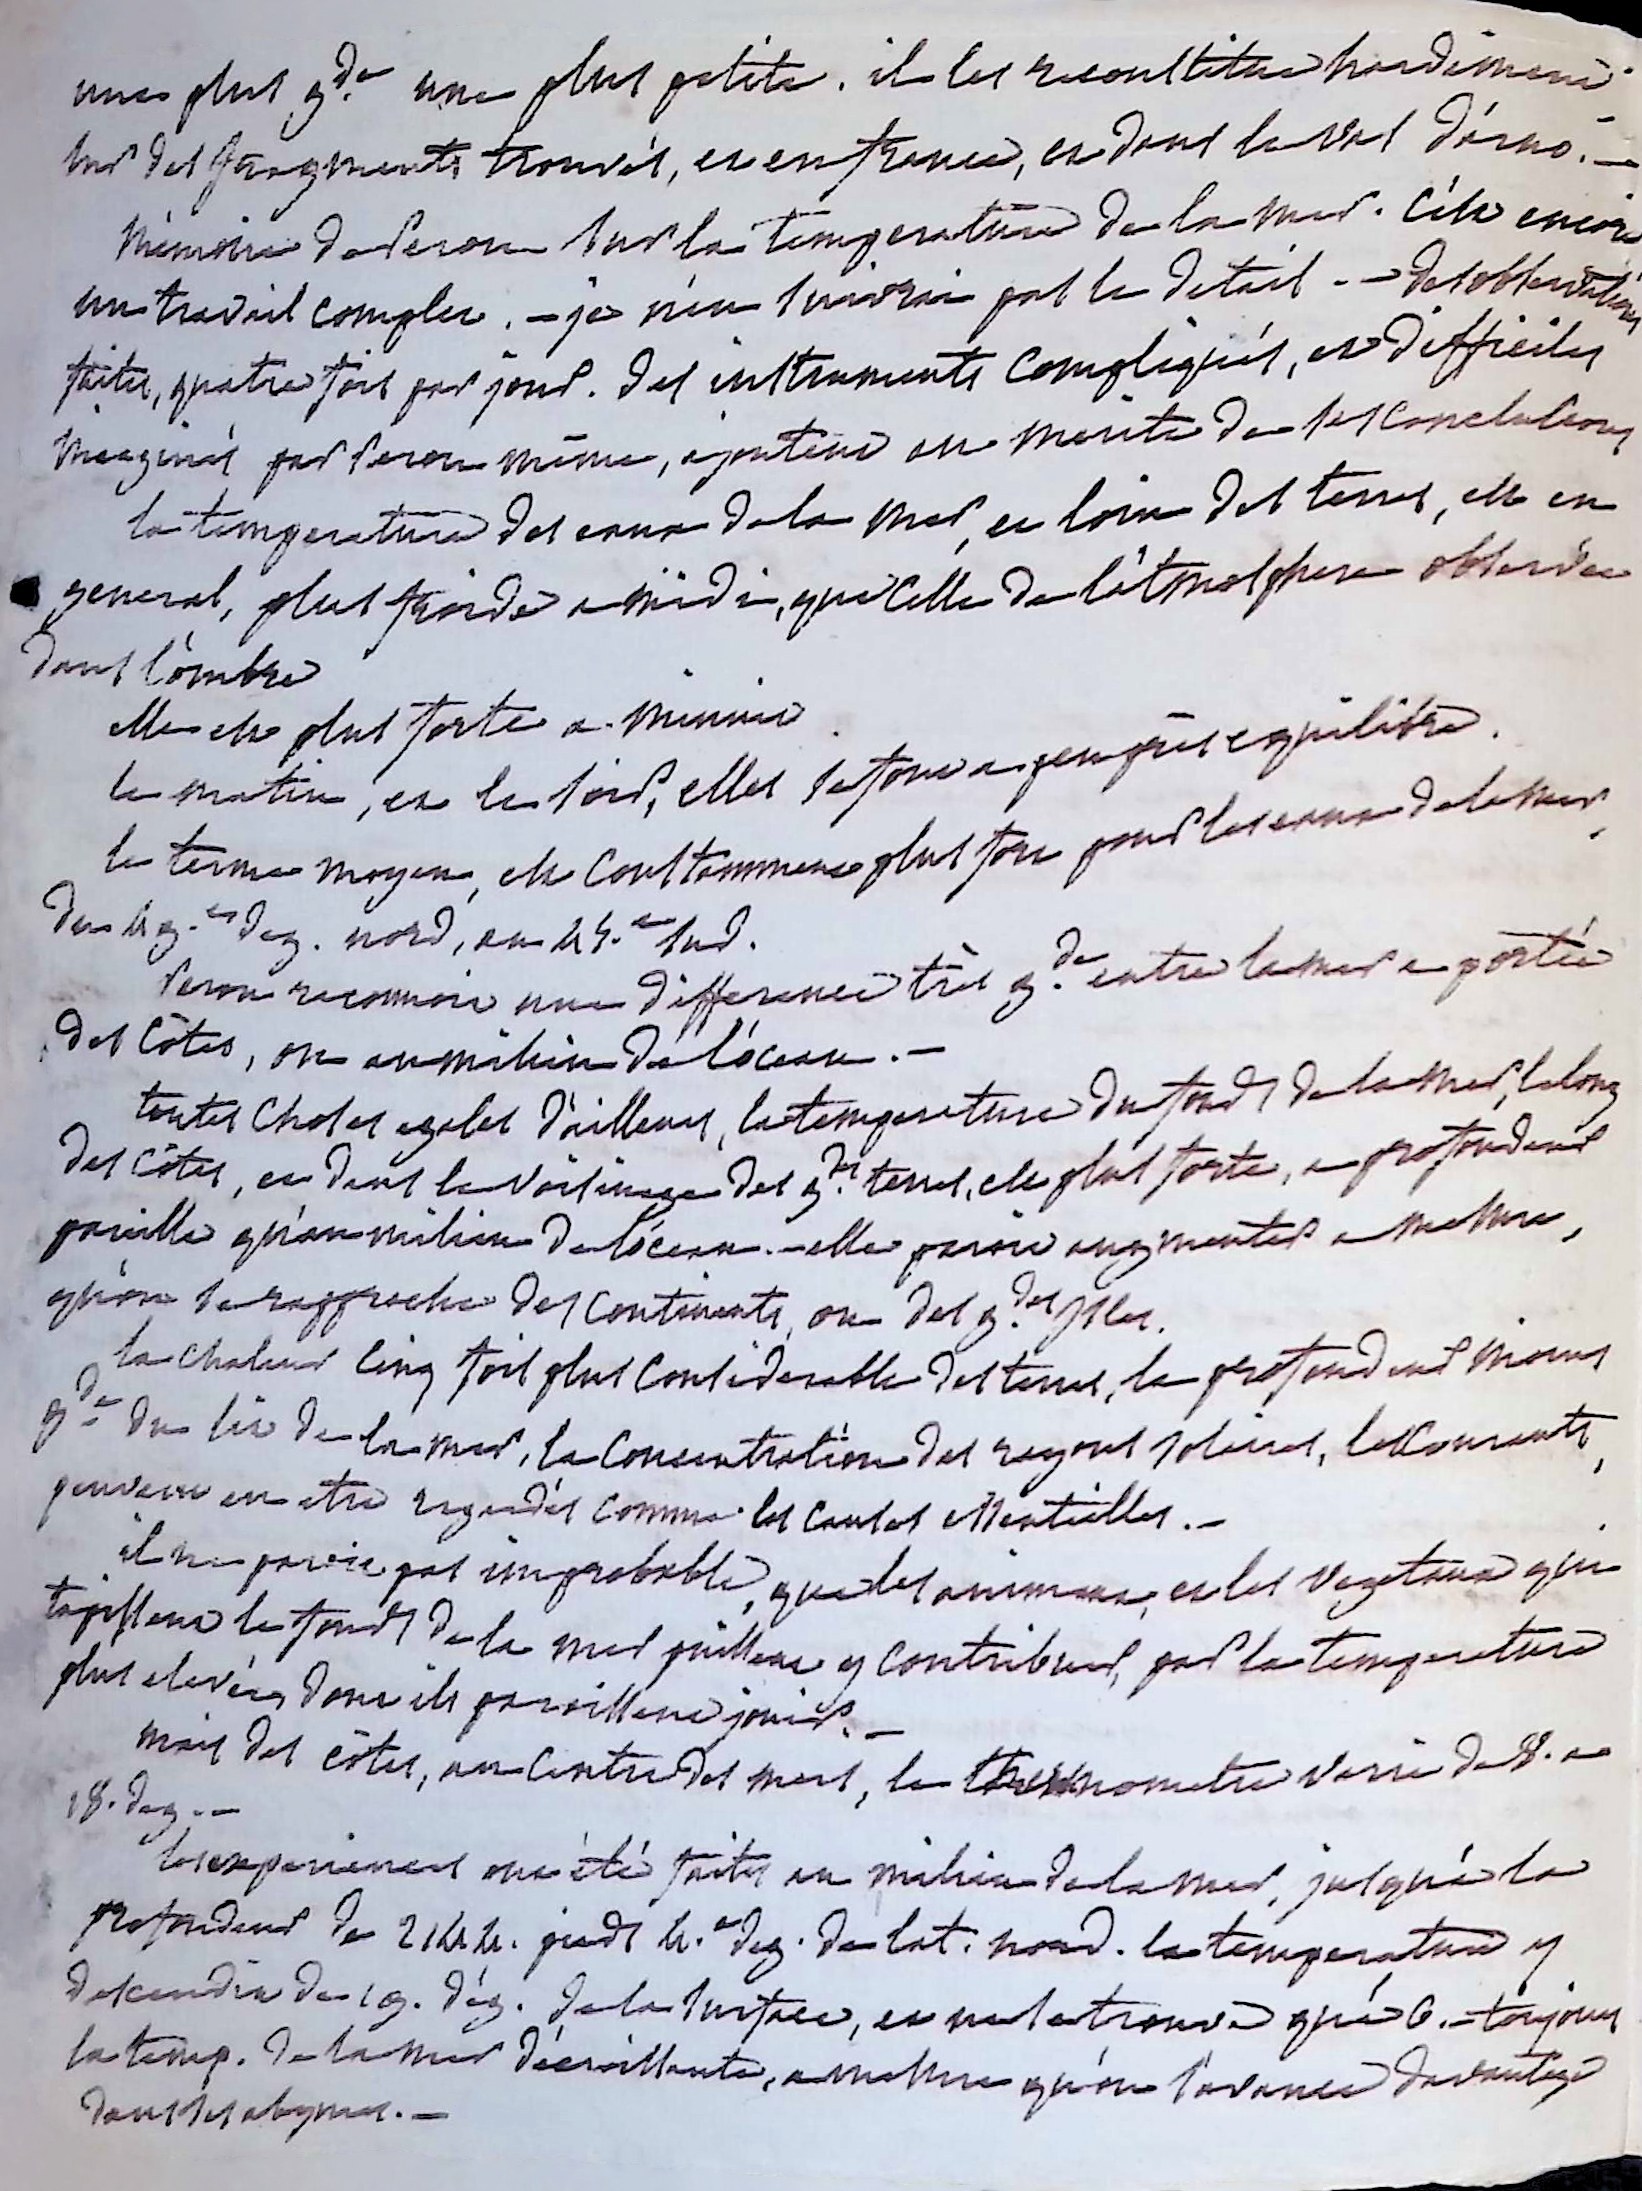 une plus g.de une plus petite. il les reconstitue hardiment
sur des fragments trouvés, et en france, et dans le val d'arno. —
Mémoire de Peron sur la temperature de la mer. C'est encore
un travail complet. — je n'en suivrai pas le detail. — des observations
faites, quatre fois par jour. des instruments compliqués, et difficiles
imaginés par Peron même, ajoutent au merite de ses conclusions
la temperature des eaux de la mer, et loin des terres, est en
general, plus froide a midi, que celle de l'atmosphere observée
dans l'ombre
elle est plus forte a minuit.
le matin, et le soir, elles se font a peu près equilibre.
le terme moyen, est constamment plus fort pour les eaux de la mer,
du 49.e deg. nord, au 45.e sud.
Peron reconnoit une difference très g.de entre la mer a portée
des côtes, ou au milieu de l'ocean. —
toutes choses egales d'ailleurs, la temperature du fonds de la mer, le long
des côtes, et dans le voisinage des g.des terres, est plus forte, a profondeur
pareille qu'au milieu de l'ocean. — elle paroit augmenter a mesure,
qu'on se rapproche des continents, ou des g.des isles.
la chaleur cinq fois plus considerable des terres, la profondeur moins
g.de du lit de la mer, la concentration des rayons solaires, les courants,
peuvent en etre regardés comme les causes essentielles. —
il ne paroit pas improbable, que les animaux, et les vegetaux qui
tapissent le fonds de la mer puissent y contribuer, par la temperature
plus elevée, dont ils paroissent jouir. —
mais des côtes, au centre des mers, le thermometre varie de 8. a
18. deg. —
les experiences ont été faites au milieu de la mer, jusqu'à la
profondeur de 2144. pieds 4.e deg. de lat. nord. la temperature y
descendit de 19. dég. de la surface, et ne se trouva qu'à 6. — toujours
la temp. de la mer décroissante, a mesure qu'on s'avance davantage
dans ses abymes. —